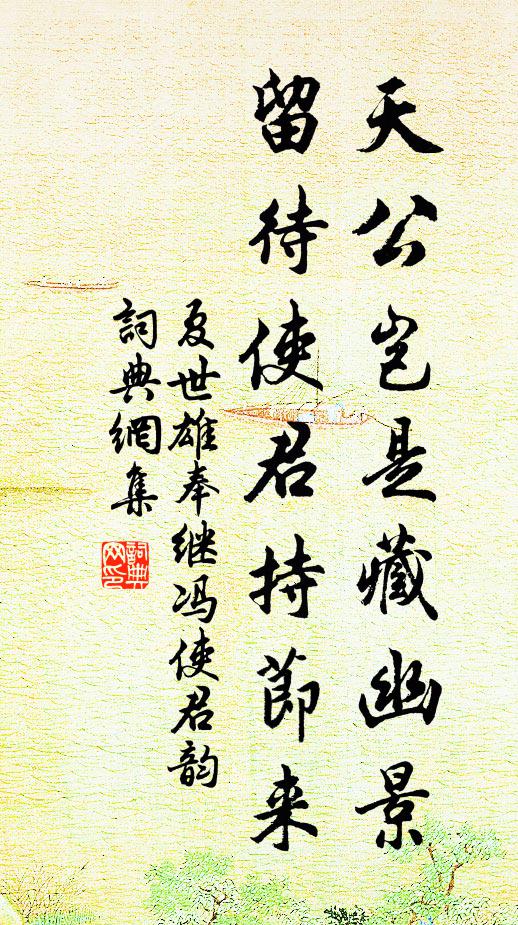 天公岂是藏幽景
留待使君持節来
夏世雄奉继冯使君韵
詞典網集
詞典网印